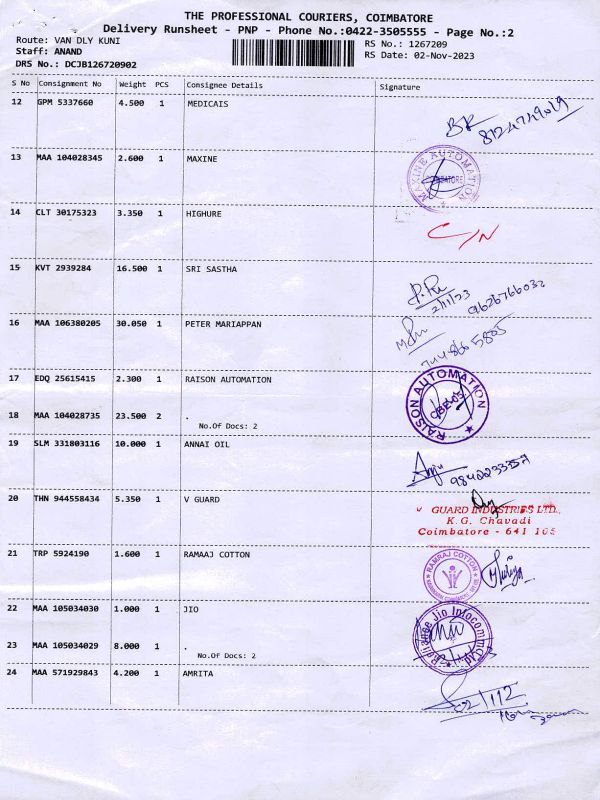 THE PROFESSIONAL COURIERS, COIMBATORE
Delivery Runsheet - PNP - Phone No.:0422-3505555 - Page No.:2
Route: VAN DLY KUNI
RS No.: 1267209
Staff: ANAND
RS Date: 02-Nov-2023
DRS No.: DCJB126720902
S No Consignment No Weight PCS Consignee Details Signature
12 GPM 5337660 4.500 1 MEDICAIS
13 MAA 104028345 2.600 1 MAXINE
MAXINE AUTOMATION
COIMBATORE
14 CLT 30175323 3.350 1 HIGHURE
C/N
15 KVT 2939284 16.500 1 SRI SASTHA
2/11/23
9626766032
16 MAA 106380205 30.050 1 PETER MARIAPPAN
17 EDQ 25615415 2.300 1 RAISON AUTOMATION
RAISON AUTOMATION
18 MAA 104028735 23.500 2 .
No.Of Docs: 2
19 SLM 331803116 10.000 1 ANNAI OIL
9842233357
20 THN 944558434 5.350 1 V GUARD
V GUARD INDUSTRIES LTD.,
K.G. Chavadi
Coimbatore - 641 105
21 TRP 5924190 1.600 1 RAMAAJ COTTON
RAMRAJ COTTON
22 MAA 105034030 1.000 1 JIO
Reliance Jio Infocomm Ltd
23 MAA 105034029 8.000 1 .
No.Of Docs: 2
24 MAA 571929843 4.200 1 AMRITA